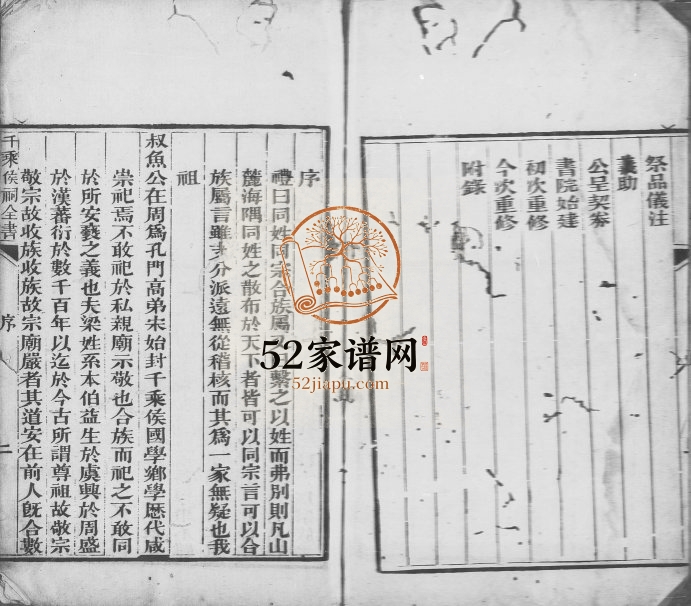 祭品儀注
義助
公呈契劵
書院始建
初次重修
今次重修
附錄
序
禮曰同姓同宗合族屬又曰繫之以姓而弗別則凡山
麓海隅同姓之散布於天下者皆可以同宗言可以合
族屬言雖分派遠無從稽核而其爲一家無疑也我
祖
叔魚公在周爲孔門高弟宋始封千乘侯國學鄉學歷代咸
崇祀焉不敢祀於私親廟示敬也合族而祀之不敢同
於所安褻之義也夫梁姓系本伯益生於虞興於周盛
於漢蕃衍於數千百年以迄於今古所謂尊祖故敬宗
敬宗故收族收族故宗廟嚴者其道安在前人旣合數
千乘侯祠全書
序
二
52家谱网
52jiapu.com